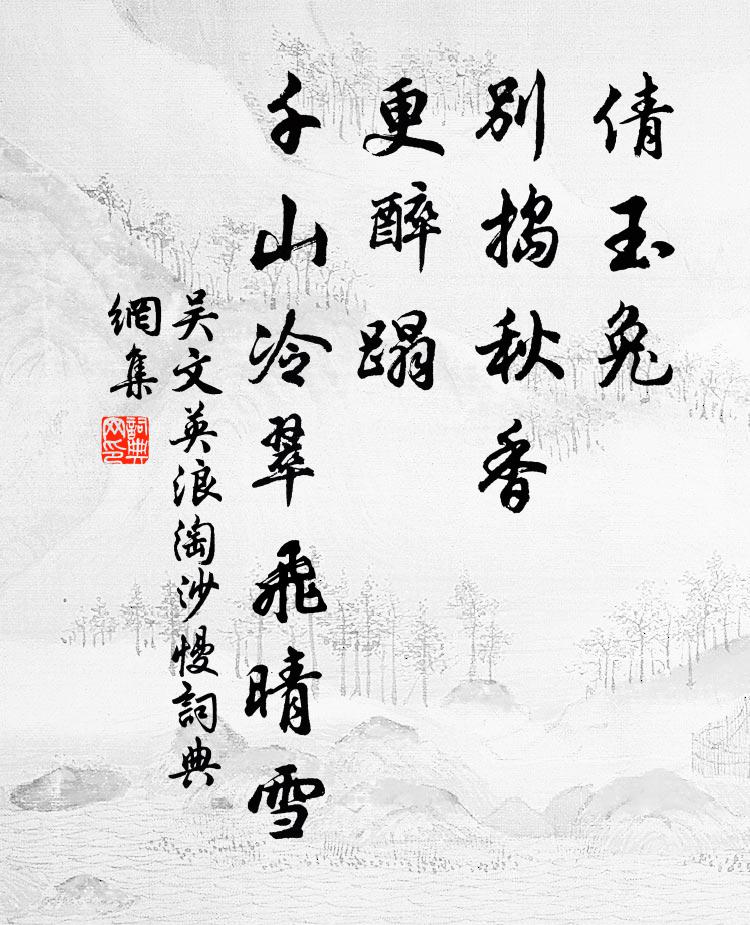 倩玉兔
別搗秋香
更醉蹋
千山冷翠飛晴雪
吴文英浪淘沙慢詞典
網集
詞典
网印